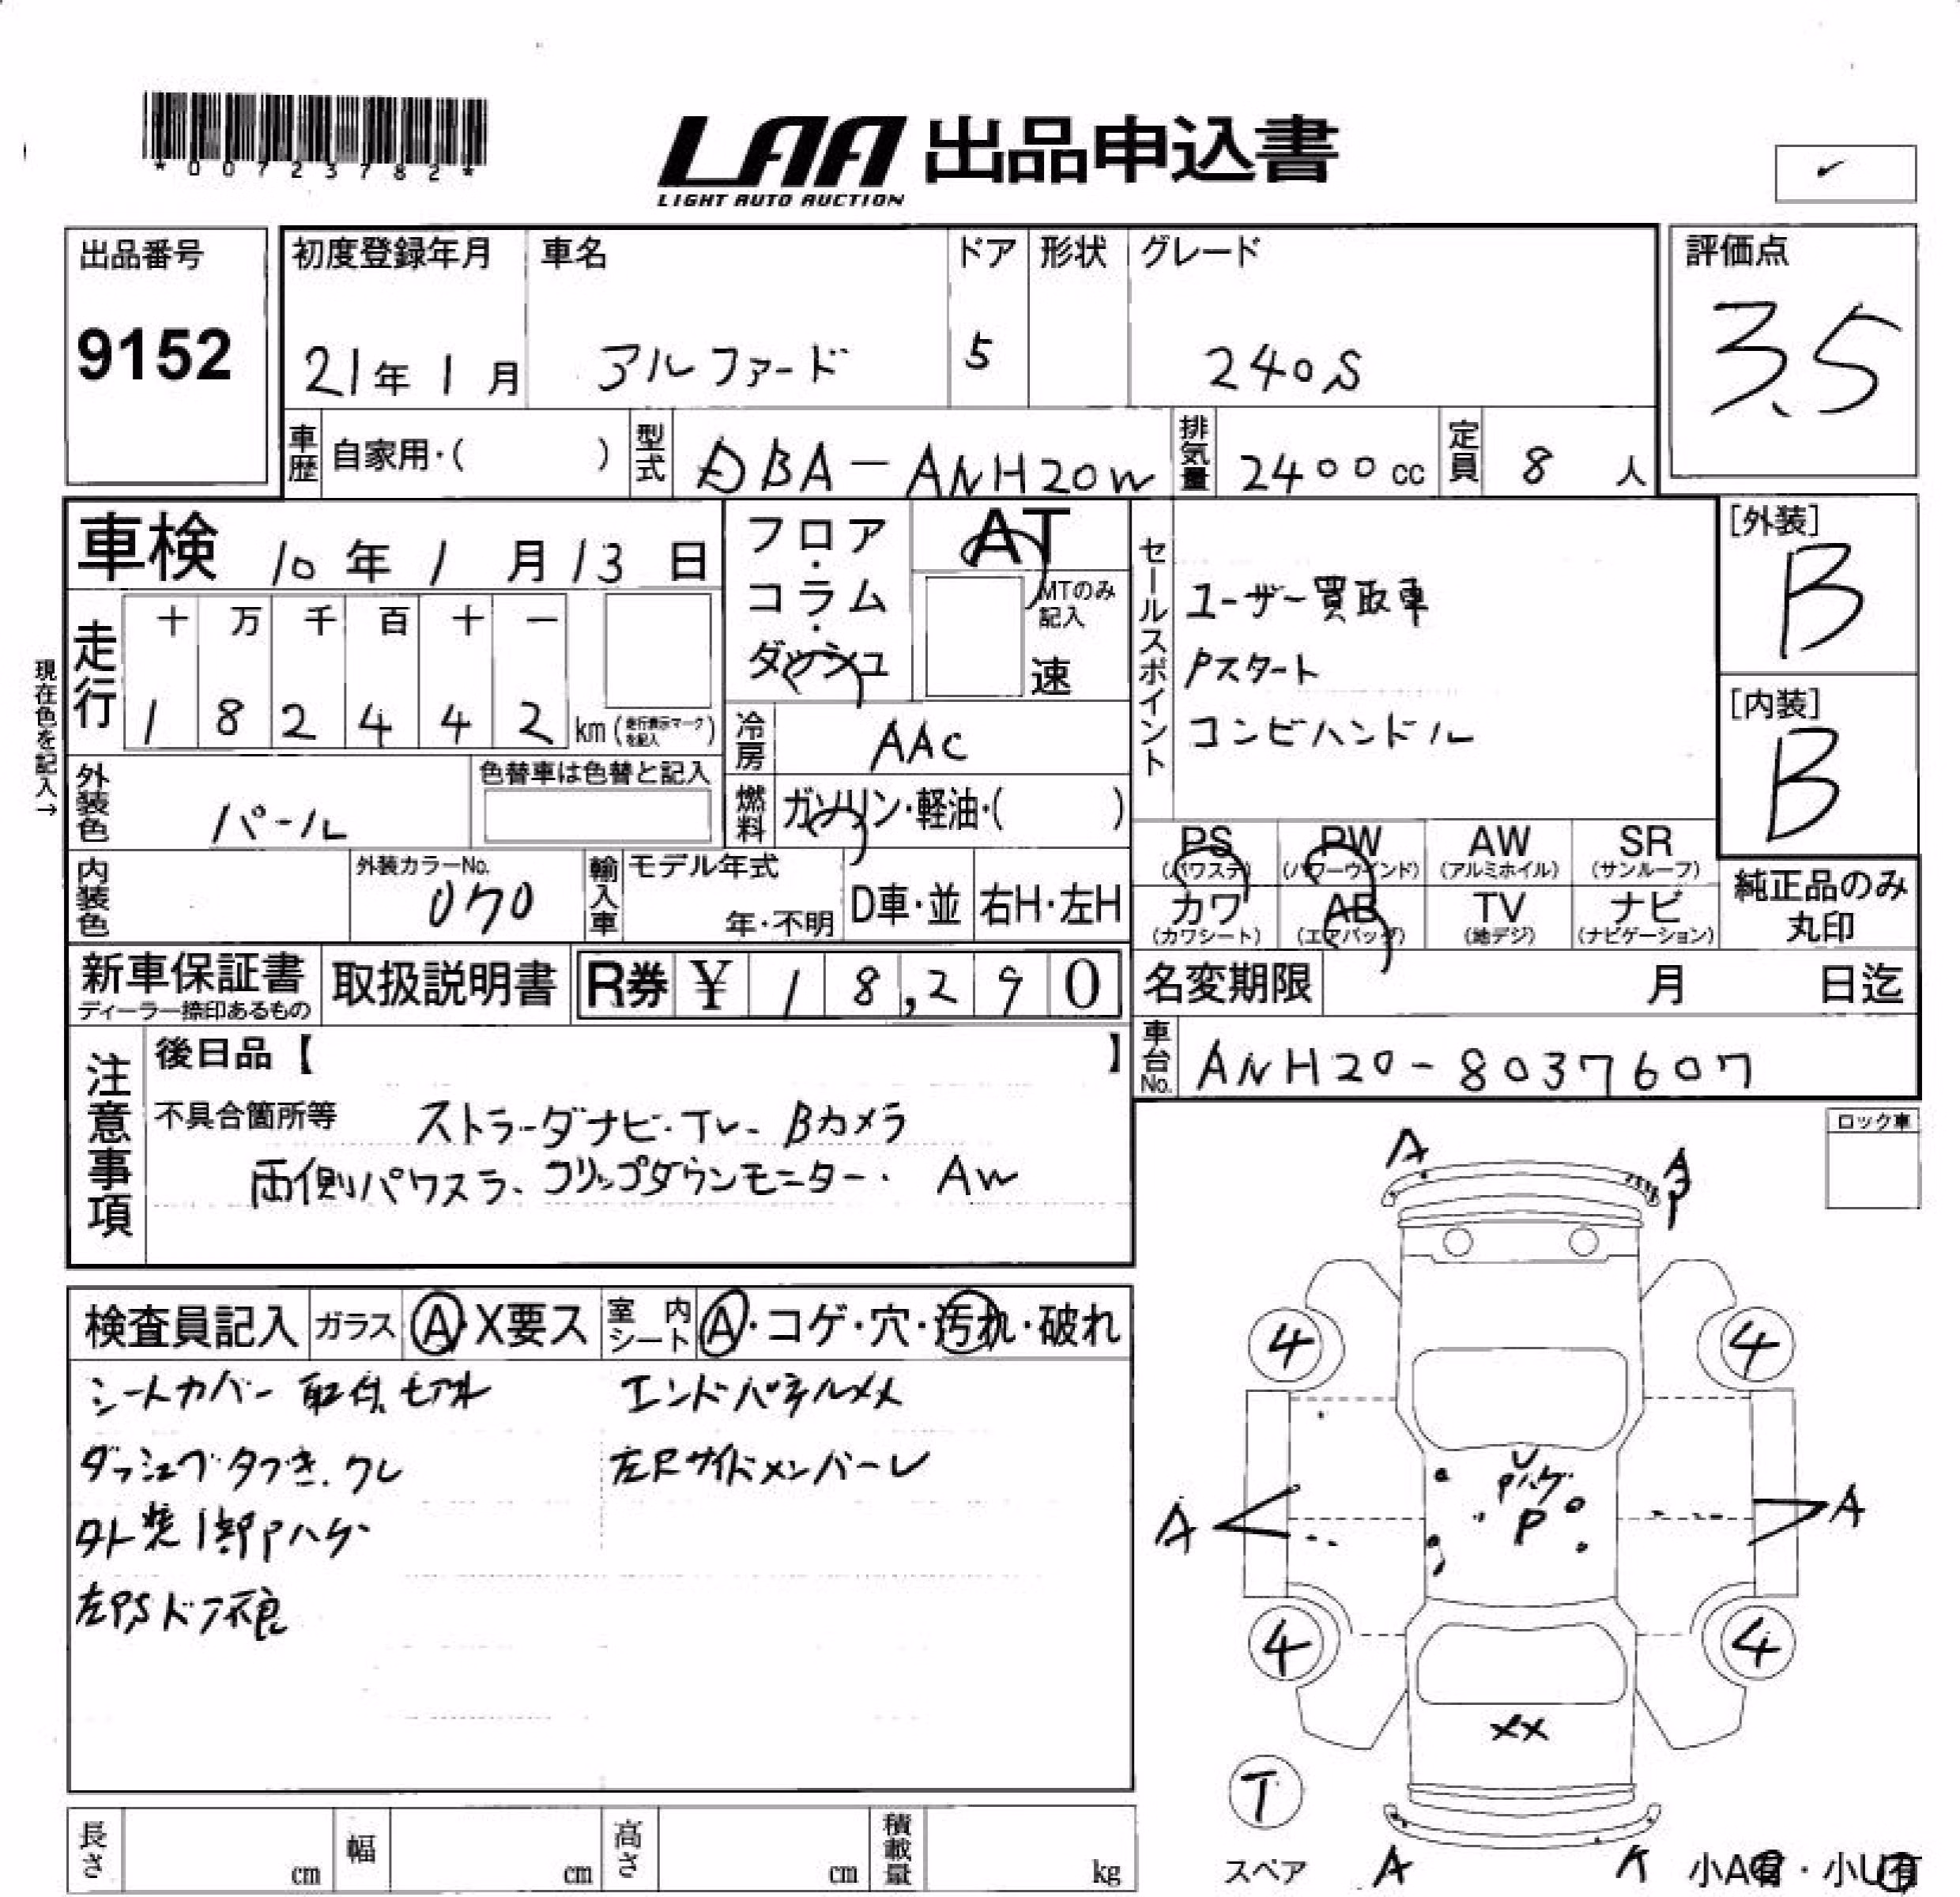 *00723782*
LAA 出品申込書
LIGHT AUTO AUCTION
出品番号
9152
初度登録年月
21年 1月
車名
アルファード
ドア
5
形状
グレード
240S
評価点
3.5
車歴 自家用・( )
型式 DBA-ANH20W
排気量 2400cc
定員 8人
車検 10年 1月 13日
フロア・コラム・ダッシュ
AT
MTのみ記入
速
セールスポイント
ユーザー買取車
Pスタート
コンビハンドル
[外装]
B
[内装]
B
現在色を記入→
走行
十 万 千 百 十 一
1 8 2 4 4 2 km (走行表示マークを記入)
冷房 AAC
外装色 パール
色替車は色替と記入
燃料 ガソリン・軽油・( )
PS (パワステ)
PW (パワーウインド)
AW (アルミホイル)
SR (サンルーフ)
カワ (カワシート)
AB (エアバッグ)
TV (地デジ)
ナビ (ナビゲーション)
純正品のみ丸印
内装色
外装カラーNo. 070
輸入車
モデル年式
年・不明
D車・並
右H・左H
新車保証書
ディーラー捺印あるもの
取扱説明書
R券 ¥ 18,290
名変期限 月 日迄
車台No. ANH20-8037607
注意事項
後日品【 】
不具合箇所等 ストラーダナビ・TV・Bカメラ
両側パワスラ・フリップダウンモニター・ AW
ロック車
検査員記入
ガラス A・X要ス
室内シート A・コゲ・穴・汚れ・破れ
シートカバー取付 切れ
エンドパネルメメ
左Rサイドメンバーレ
外装1部Pハゲ
左PSドア不良
A
A
P
4
4
U
Pハゲ
P
A
A
4
4
XX
T
スペア
A
小A有・小U有
長さ cm
幅 cm
高さ cm
積載量 kg